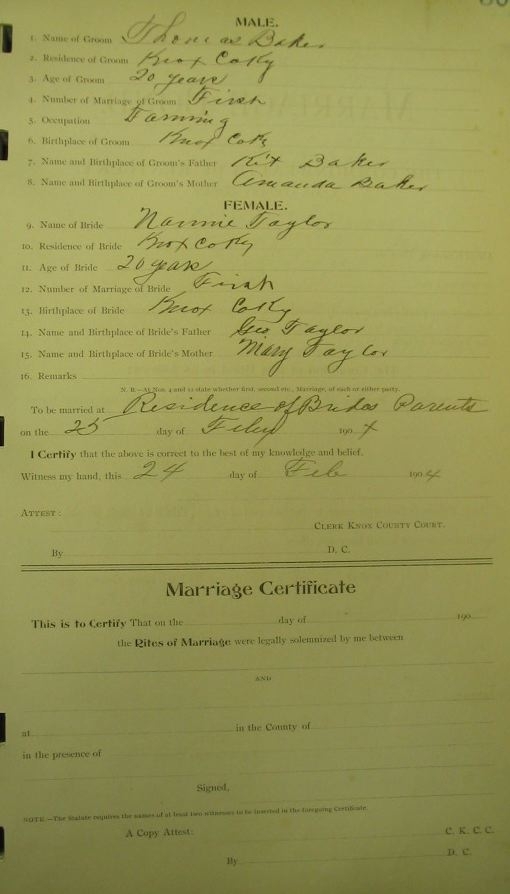 MALE.
1. Name of Groom Thomas Baker
2. Residence of Groom Knox Co Ky
3. Age of Groom 20 years
4. Number of Marriage of Groom First
5. Occupation Farming
6. Birthplace of Groom Knox Co Ky
7. Name and Birthplace of Groom's Father Kit Baker
8. Name and Birthplace of Groom's Mother Amanda Baker
FEMALE.
9. Name of Bride Nannie Taylor
10. Residence of Bride Knox Co Ky
11. Age of Bride 20 years
12. Number of Marriage of Bride First
13. Birthplace of Bride Knox Co Ky
14. Name and Birthplace of Bride's Father Geo Taylor
15. Name and Birthplace of Bride's Mother Mary Taylor
16. Remarks
N. B.—At Nos. 4 and 12 state whether first, second etc., Marriage, of each or either party.
To be married at Residence of Brides Parents
on the 25 day of Feby 1904
I Certify that the above is correct to the best of my knowledge and belief.
Witness my hand, this 24 day of Feb 1904
ATTEST:
CLERK KNOX COUNTY COURT.
By D. C.
Marriage Certificate
This is to Certify That on the day of 190
the Rites of Marriage were legally solemnized by me between
AND
at in the County of
in the presence of
Signed,
NOTE.—The Statute requires the names of at least two witnesses to be inserted in the foregoing Certificate.
A Copy Attest: C. K. C. C.
By D. C.